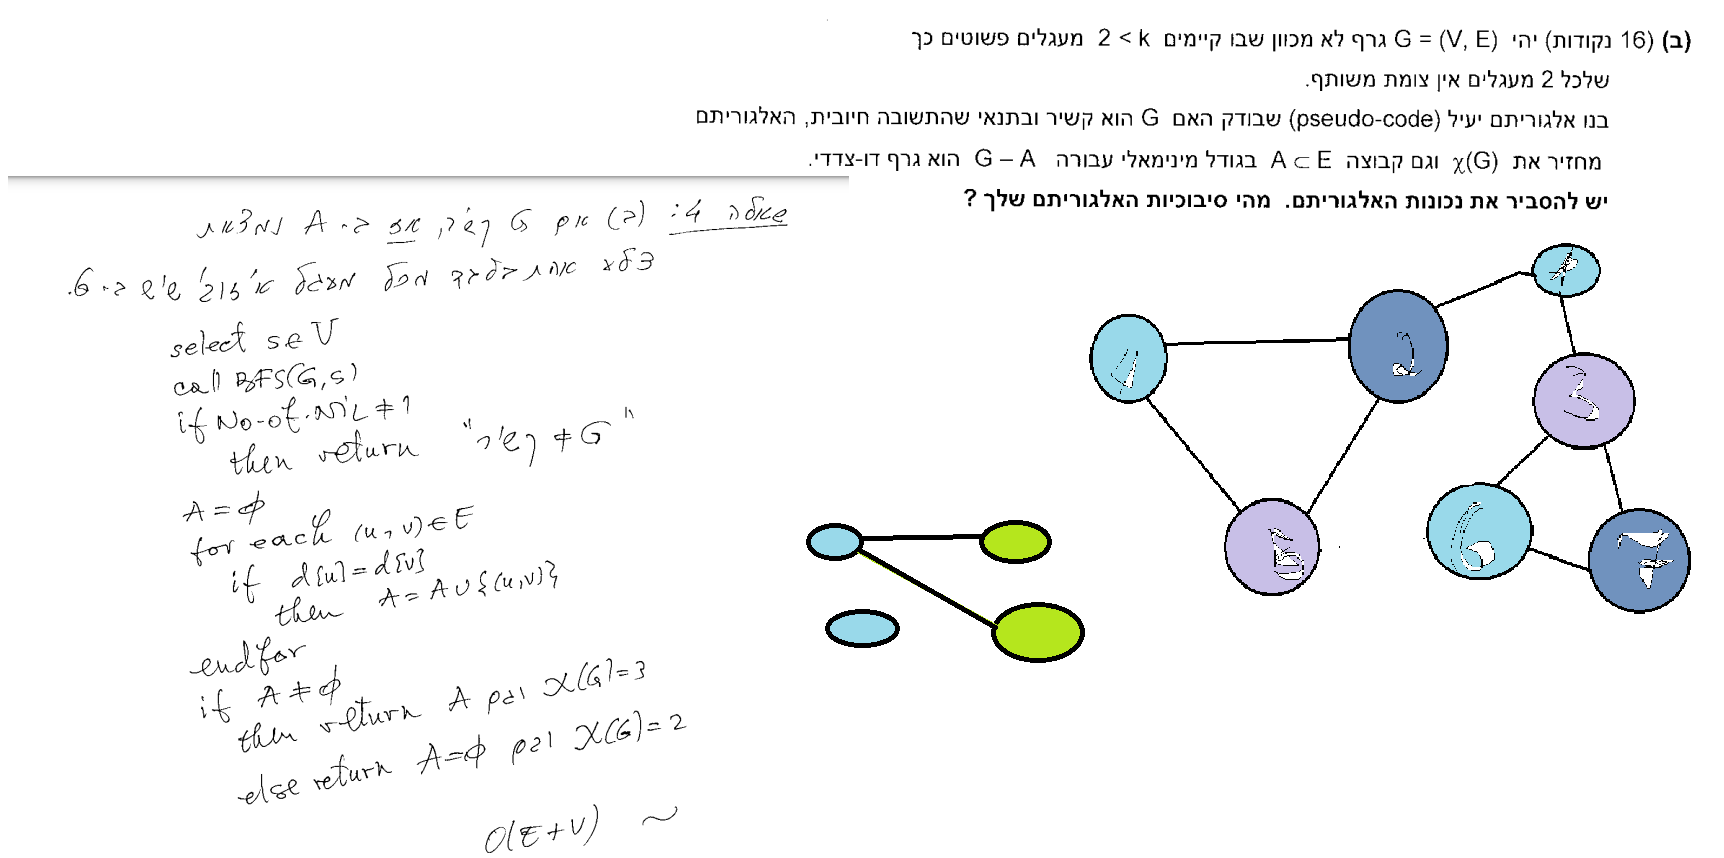 (ב) (16 נקודות) יהי G = (V, E) גרף לא מכוון שבו קיימים 2 < k מעגלים פשוטים כך
שלכל 2 מעגלים אין צומת משותף.
בנו אלגוריתם יעיל (pseudo-code) שבודק האם G הוא קשיר ובתנאי שהתשובה חיובית, האלגוריתם
מחזיר את χ(G) וגם קבוצה A ⊂ E בגודל מינימאלי עבורה G – A הוא גרף דו-צדדי.
יש להסביר את נכונות האלגוריתם. מהי סיבוכיות האלגוריתם שלך ?
שאלה 4: (ב) אם G קשיר, אז ב-A נמצאת
צלע אחת בלבד מכל מעגל אי זוגי שיש ב-G.
select s∈V
call BFS(G,s)
if No-of-NIL ≠ 1
then return "G ≠ קשיר"
A = ϕ
for each (u,v)∈E
if d[u]=d[v]
then A = A∪{(u,v)}
endfor
if A ≠ ϕ
then return A וגם χ(G)=3
else return A=ϕ וגם χ(G)=2
O(E+V) ~
2
3
6
7